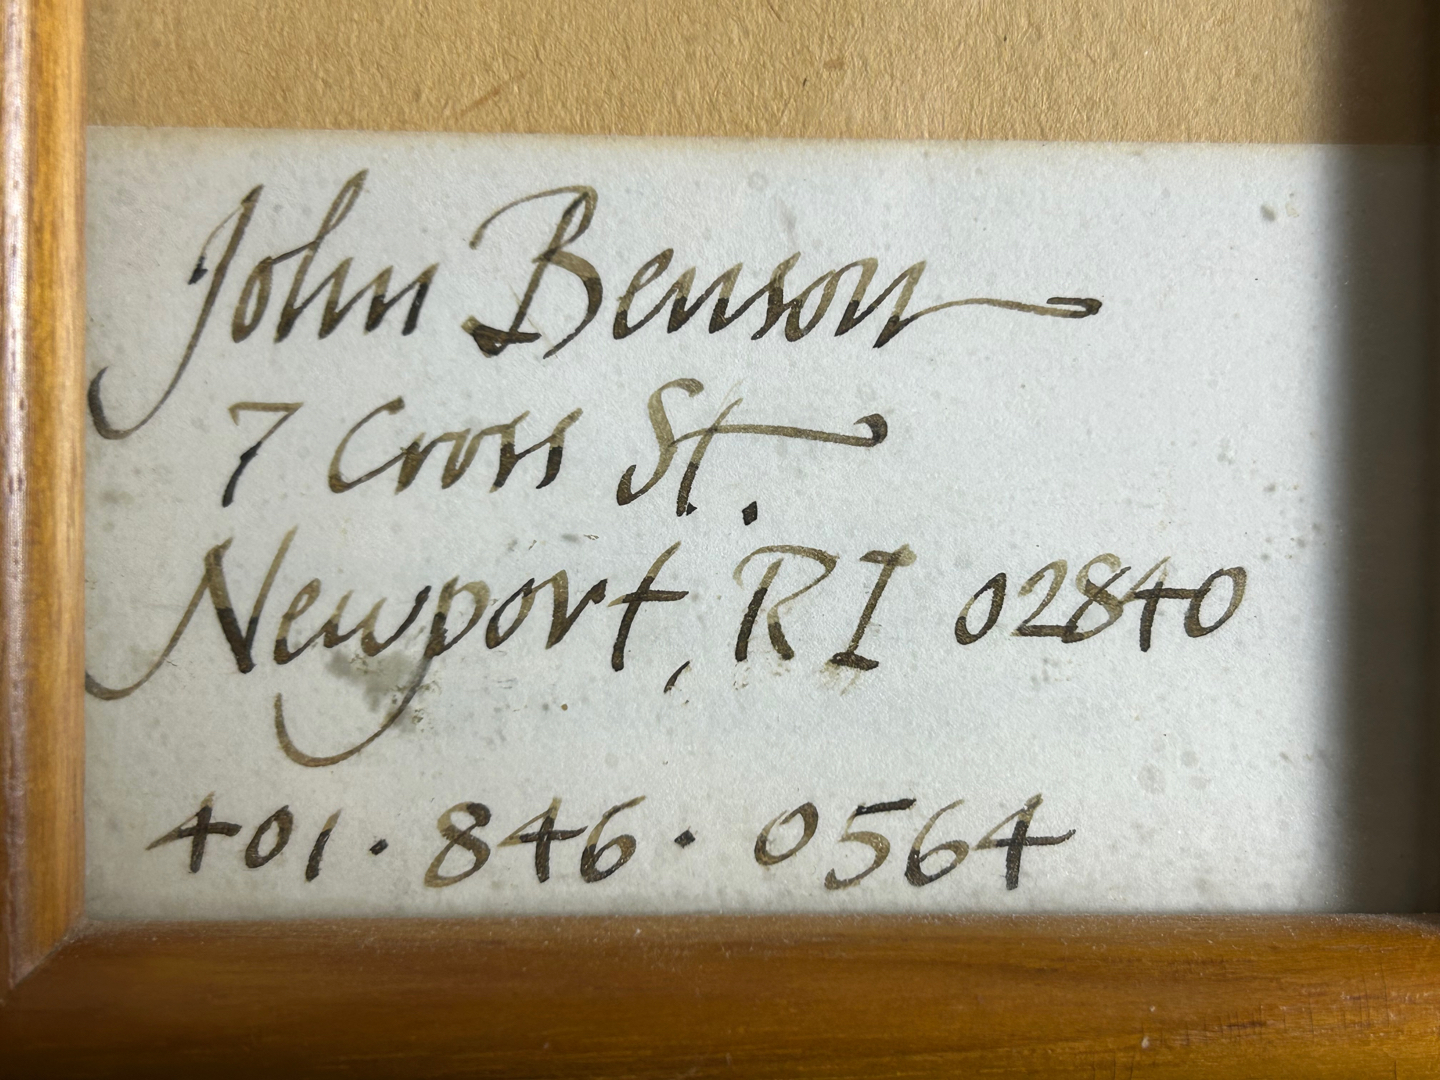 John Benson
7 Cross St.
Newport, RI 02840
401 · 846 · 0564